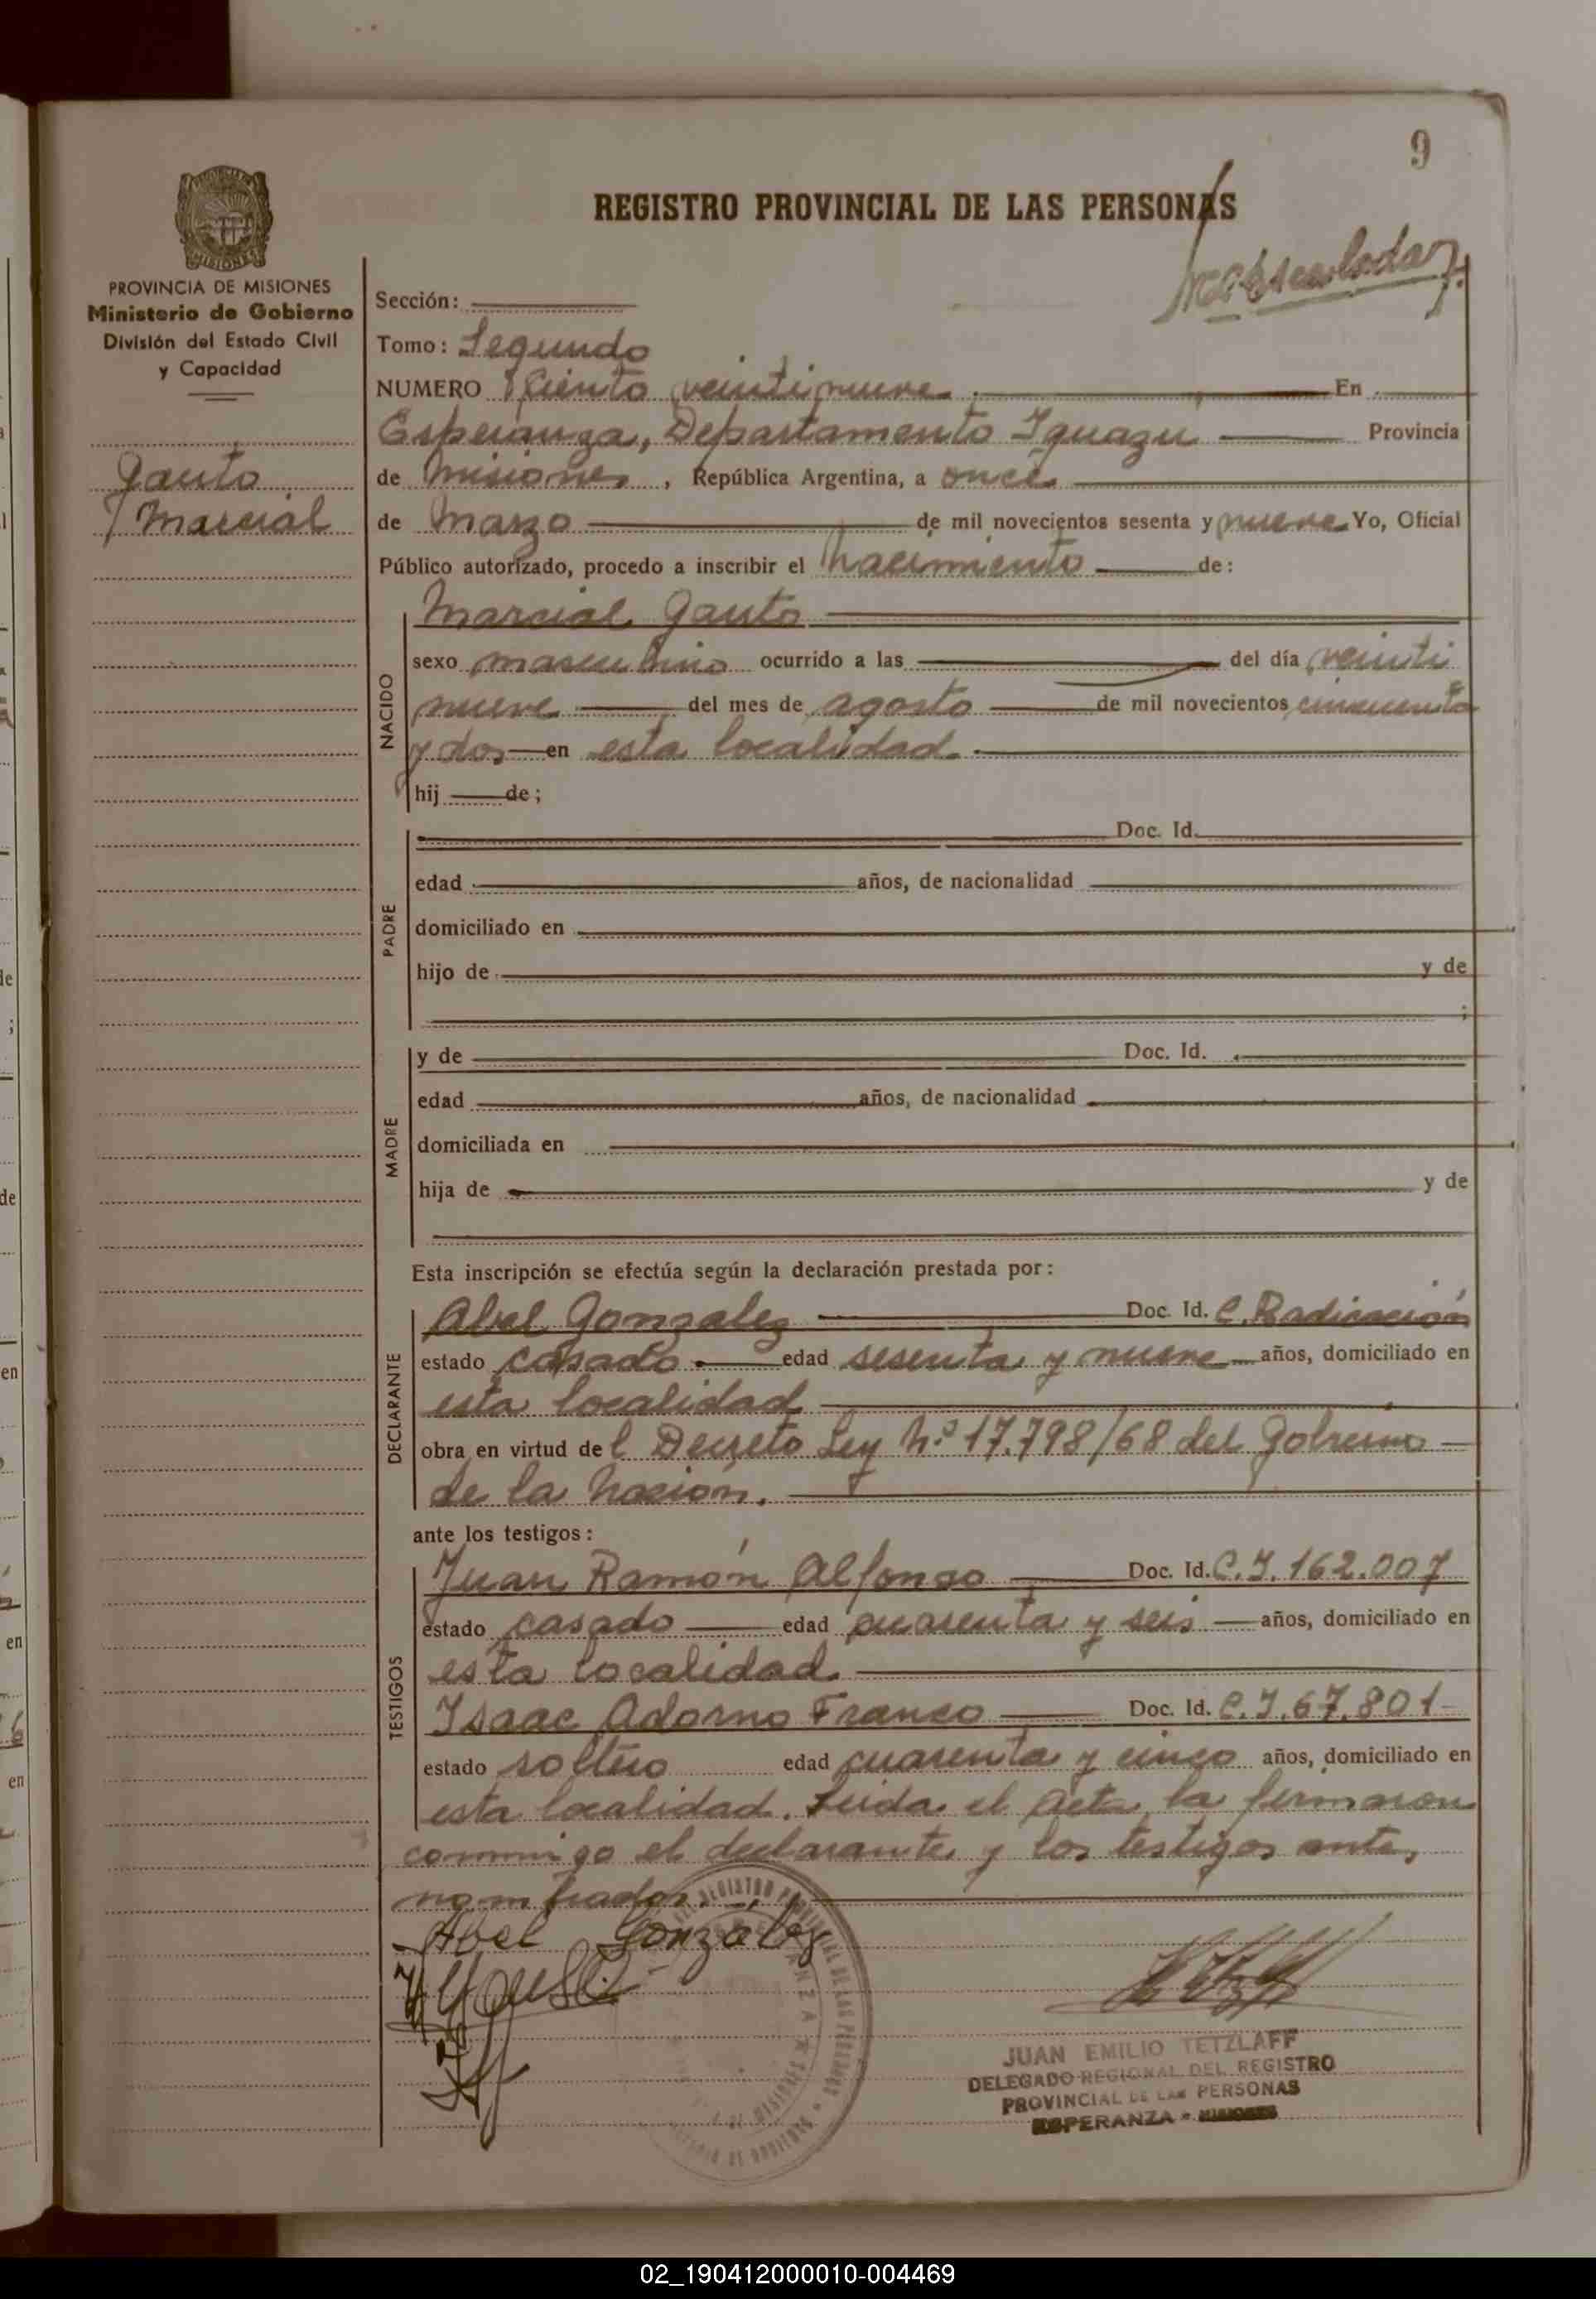 9
REGISTRO PROVINCIAL DE LAS PERSONAS
PROVINCIA DE MISIONES
Ministerio de Gobierno
División del Estado Civil
y Capacidad
Gauto
Marcial
Sección:
Tomo: Segundo
NUMERO Ciento veintinueve En
Esperanza, Departamento Iguazu Provincia
de Misiones, República Argentina, a once
de Marzo de mil novecientos sesenta y nueve Yo, Oficial
Público autorizado, procedo a inscribir el Nacimiento de:
NACIDO
Marcial Gauto
sexo masculino ocurrido a las del día veinti
nueve del mes de agosto de mil novecientos cincuenta
y dos en esta localidad.
hij de;
PADRE
Doc. Id.
edad años, de nacionalidad
domiciliado en
hijo de y de
;
MADRE
y de Doc. Id.
edad años, de nacionalidad
domiciliada en
hija de y de
Esta inscripción se efectúa según la declaración prestada por:
DECLARANTE
Abel Gonzalez Doc. Id. C. Radicación
estado casado edad sesenta y nueve años, domiciliado en
esta localidad
obra en virtud de l Decreto Ley N.º 17.798/68 del Gobierno
de la Nación.
ante los testigos:
TESTIGOS
Juan Ramón Alfonso Doc. Id. C.I. 162.007
estado casado edad cuarenta y seis años, domiciliado en
esta localidad.
Isaac Adorno Franco Doc. Id. C.I. 67.801
estado soltero edad cuarenta y cinco años, domiciliado en
esta localidad. Leida el Acta, la firmaron
conmigo el declarante y los testigos ante,
nombrados.
Abel Gonzalez
JUAN EMILIO TETZLAFF
DELEGADO REGIONAL DEL REGISTRO
PROVINCIAL DE LAS PERSONAS
ESPERANZA - MISIONES
02_190412000010-004469